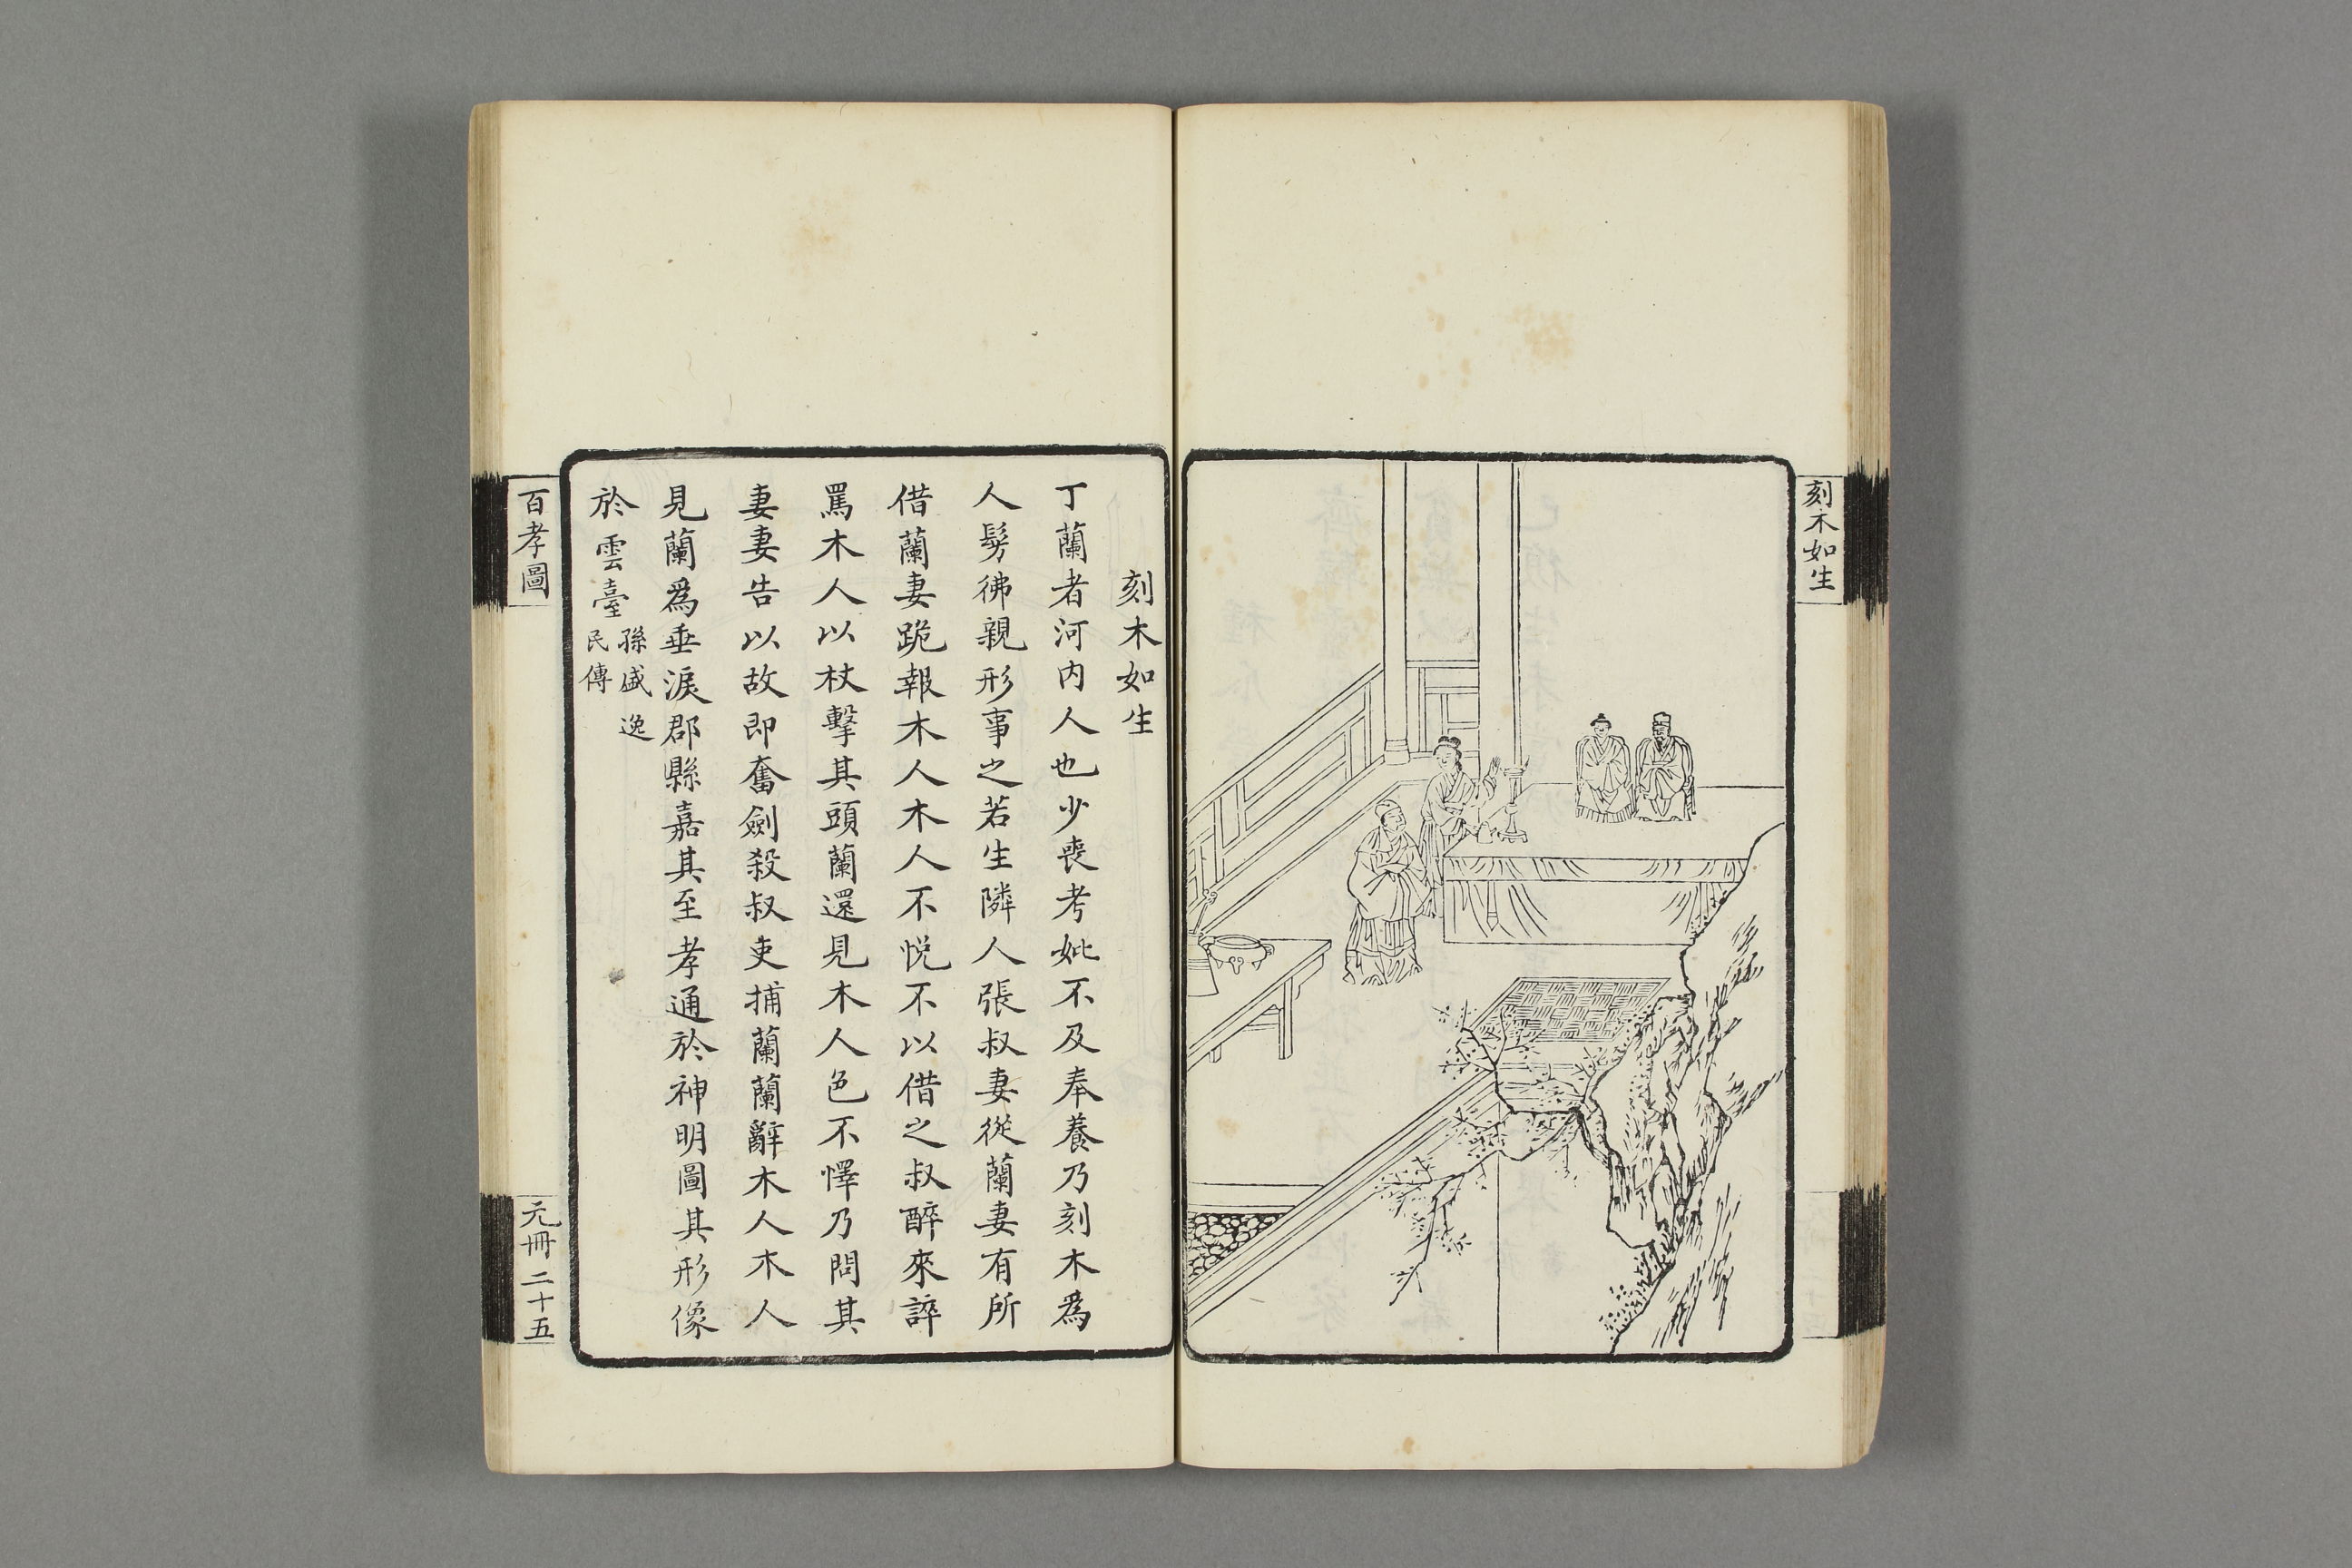 刻木如生
刻木如生
丁蘭者河内人也少喪考妣不及奉養乃刻木為
人髣彿親形事之若生隣人張叔妻從蘭妻有所
借蘭妻跪報木人木人不悦不以借之叔醉來誶
罵木人以杖擊其頭蘭還見木人色不懌乃問其
妻妻告以故即奮劍殺叔吏捕蘭蘭辭木人木人
見蘭為垂淚郡縣嘉其至孝通於神明圖其形像
於雲臺孫盛逸
民傳
百孝圖
元冊二十五